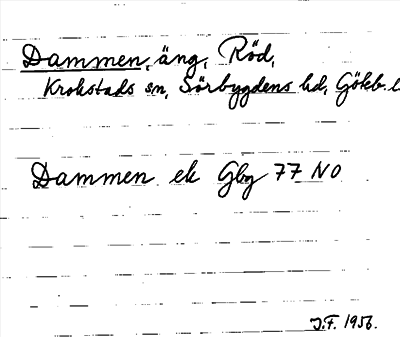 Dammen, äng, Röd,
Krokstads sn, Sörbygdens hd, Göteb. l
Dammen ek Gbg 77 NO
J.F. 1956.